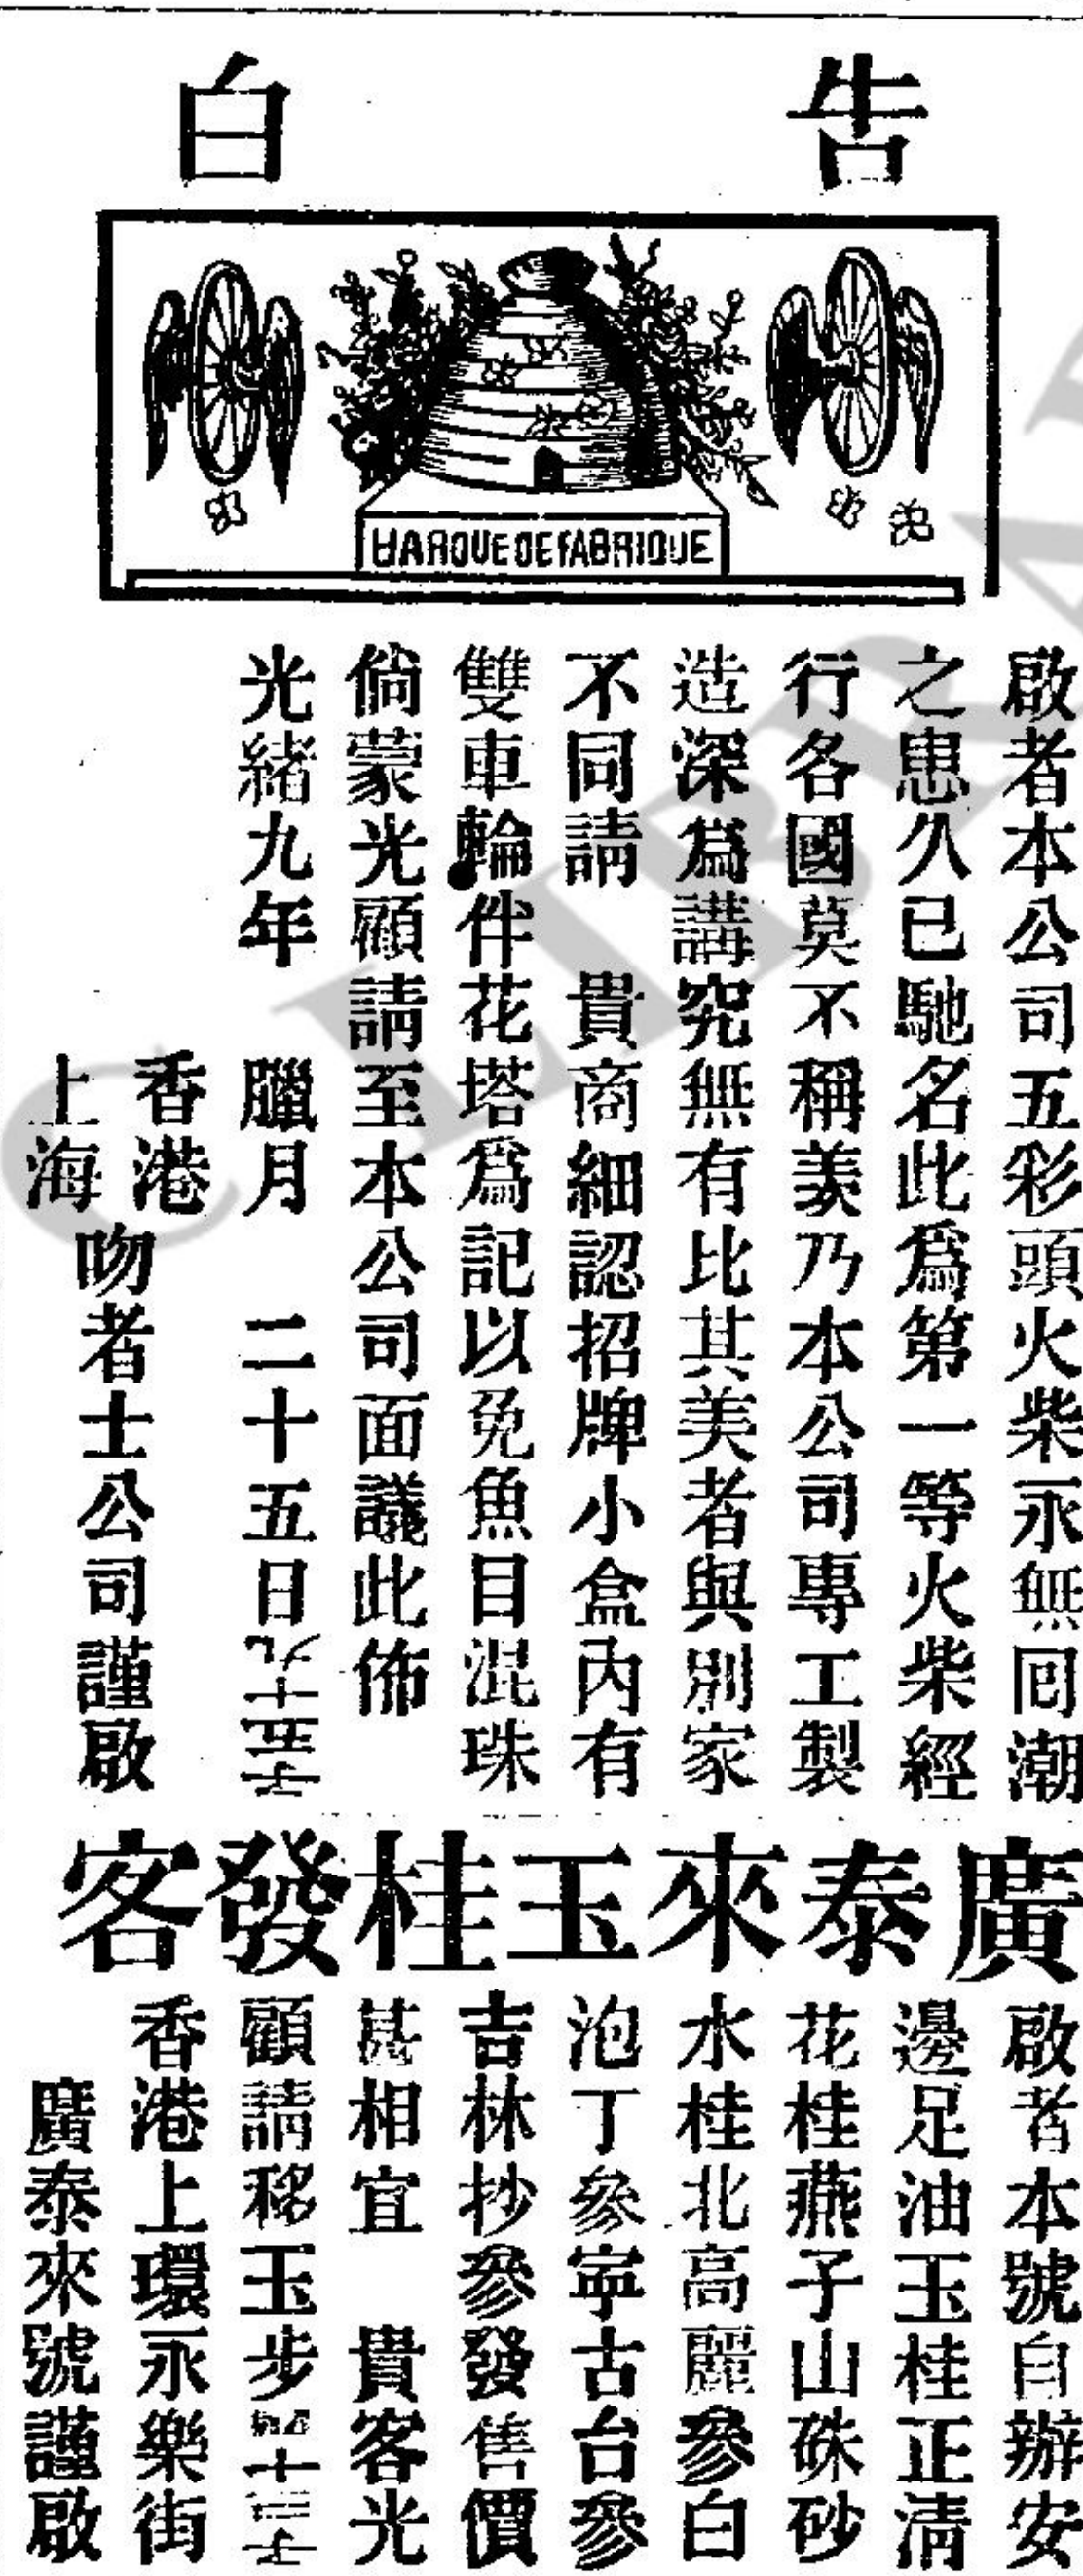 告白
MARQUE DE FABRIQUE
啟者本公司五彩頭火柴永無囘潮
之患久已馳名此爲第一等火柴經
行各國莫不稱美乃本公司專工製
造深爲講究無有比其美者與別家
不同請 貴商細認招牌小盒內有
雙車輪伴花塔爲記以免魚目混珠
倘蒙光顧請至本公司面議此佈
光緒九年 臘月 二十五日
香港
上海
吻者士公司謹啟
廣泰來玉桂發客
啟者本號自辦安
邊足油玉桂正清
花桂燕子山硃砂
水桂北高麗參白
泡丁參寧古台參
吉林抄參發售價
甚相宜 貴客光
顧請移玉步
香港上環永樂街
廣泰來號謹啟
LIBRA